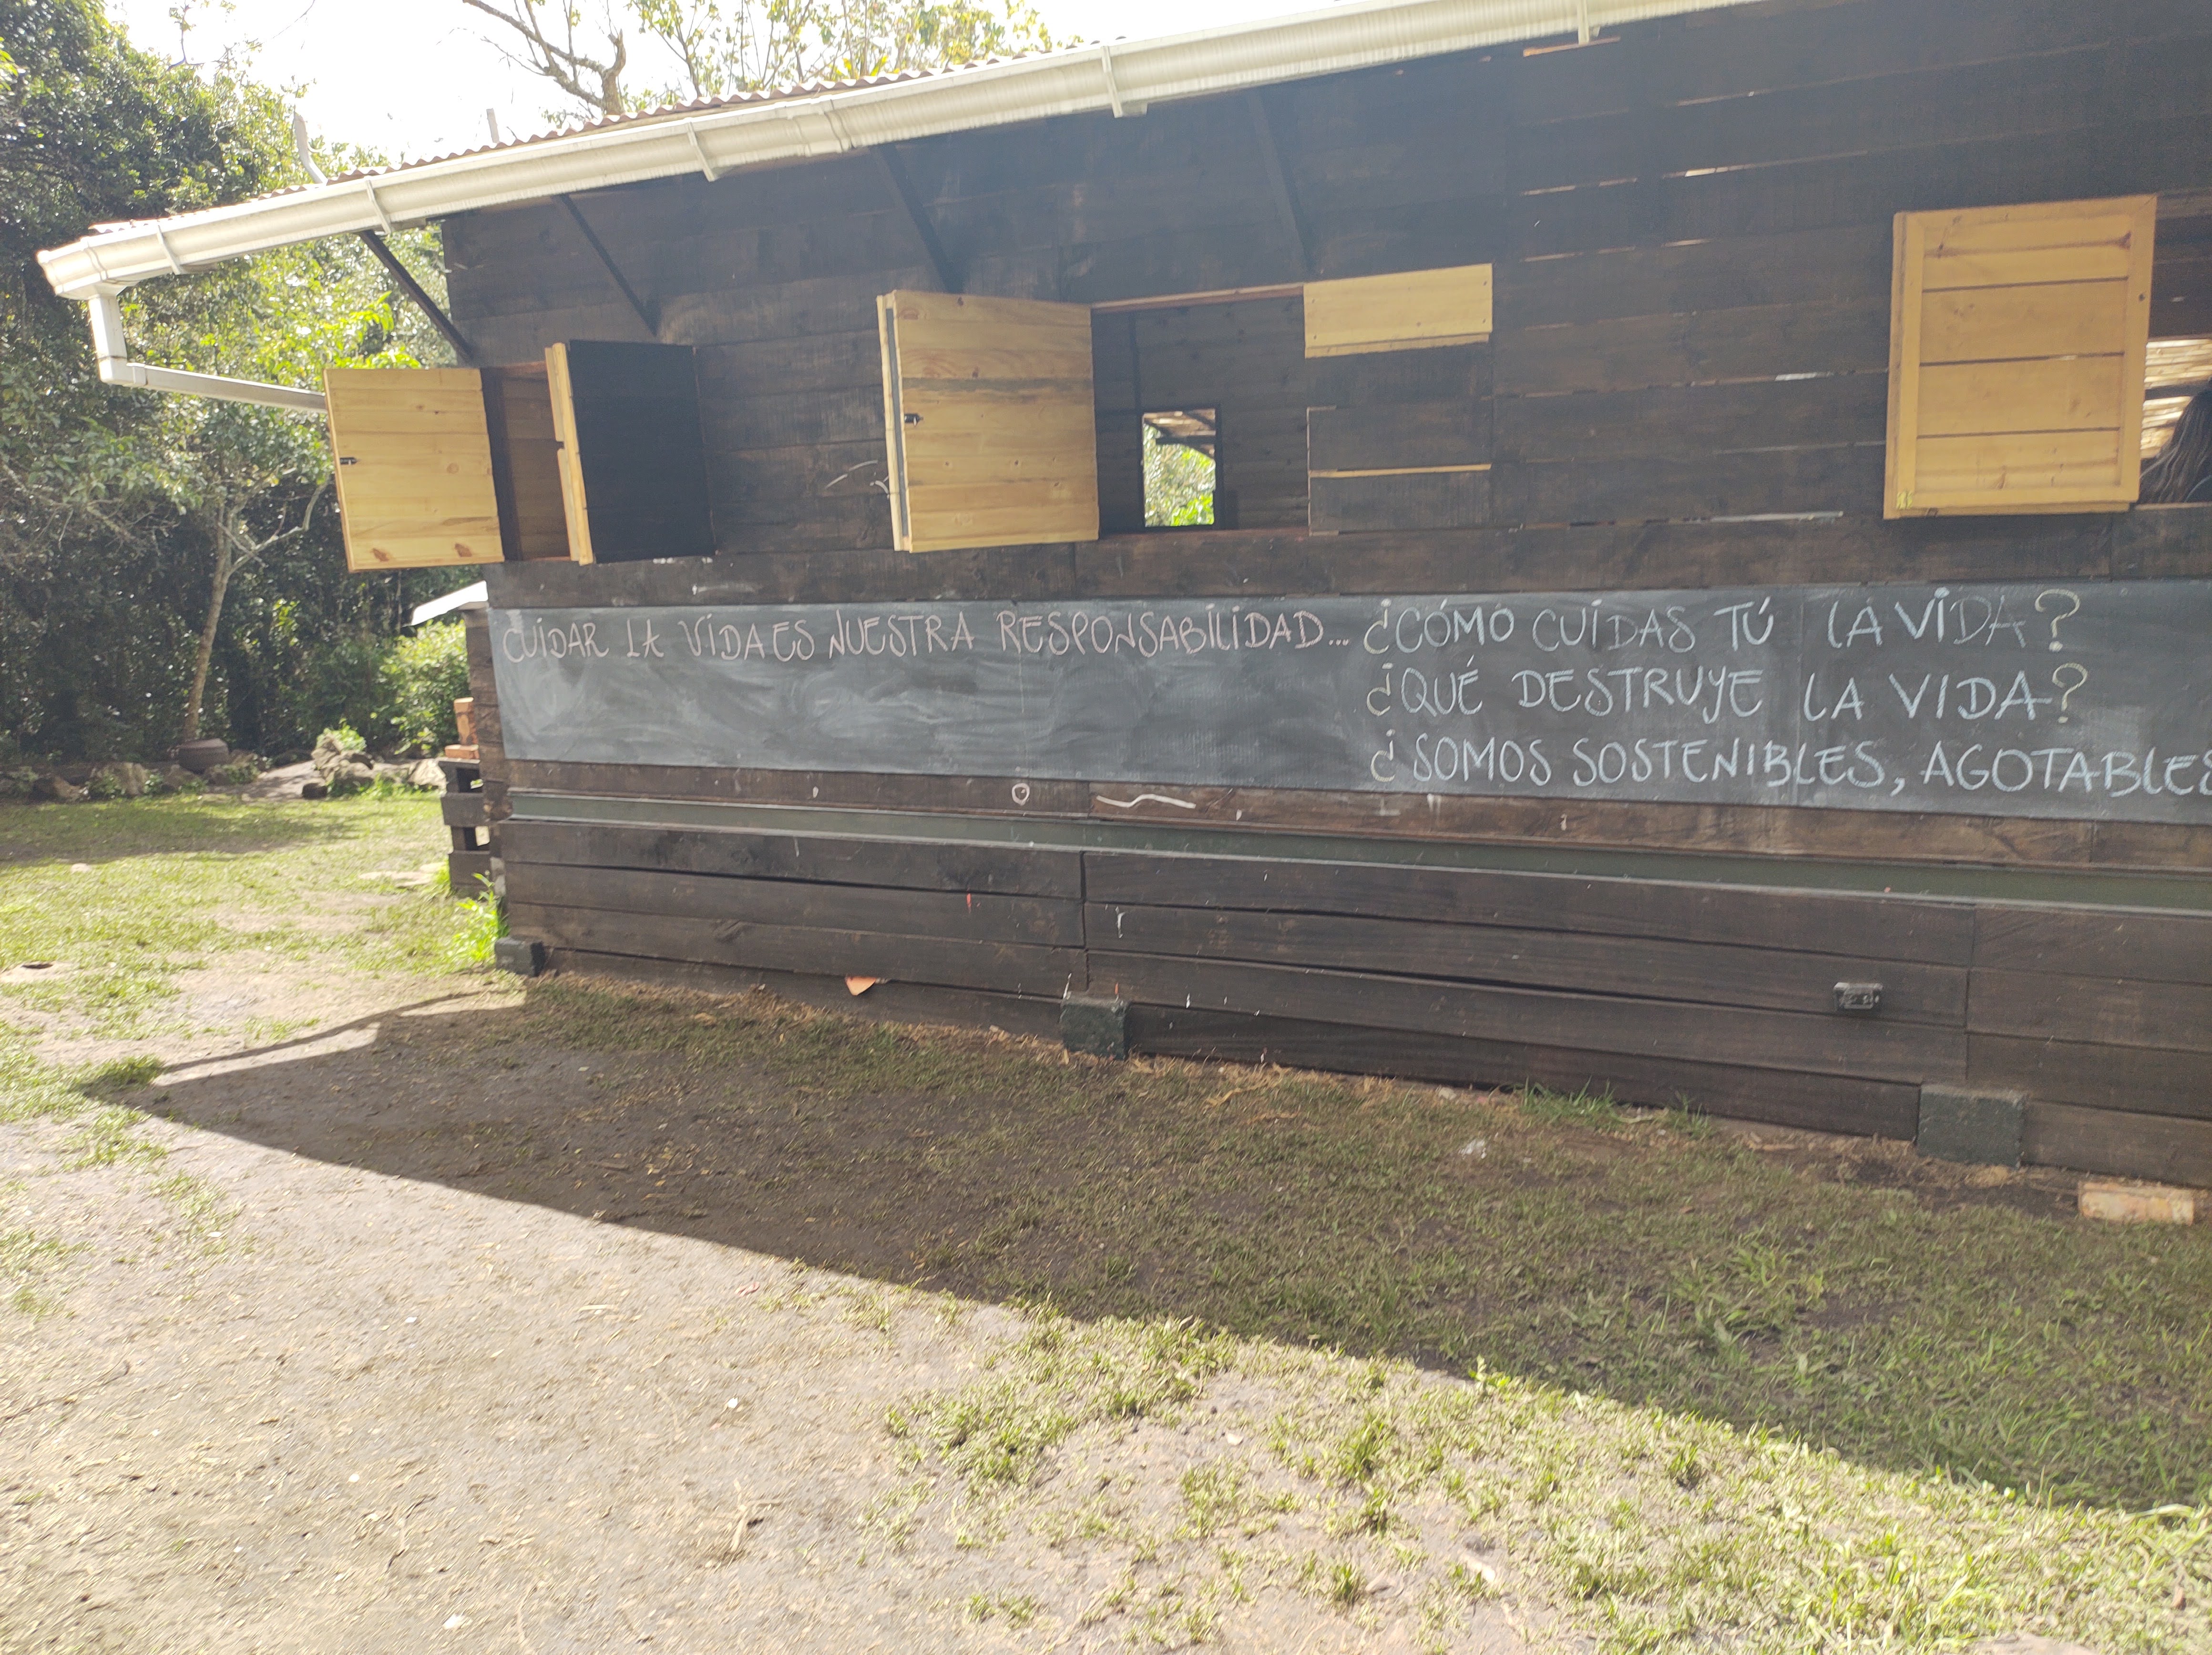 CUIDAR LA VIDA ES NUESTRA RESPONSABILIDAD... ¿CÓMO CUIDAS TÚ LA VIDA?
¿QUÉ DESTRUYE LA VIDA?
¿SOMOS SOSTENIBLES, AGOTABLES